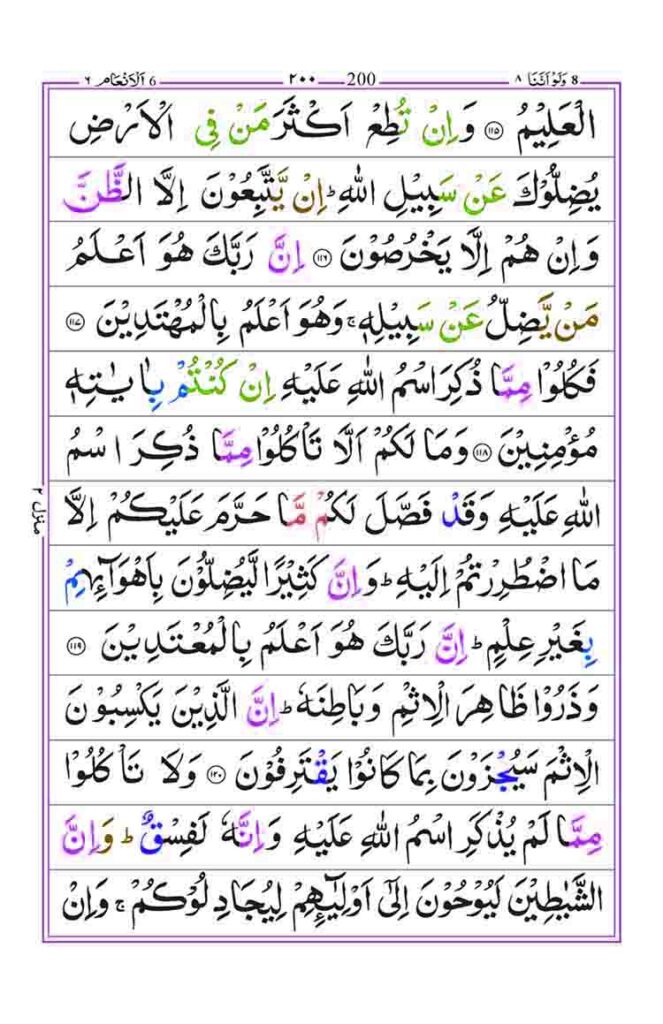 8 وَلَوْ اَنَّنَا ٨ 200 ٢٠٠ 6 اَلْاَنْعَام ٦
الْعَلِيْمُ ۝۱۱۵ وَاِنْ تُطِعْ اَكْثَرَ مَنْ فِى الْاَرْضِ
يُضِلُّوْكَ عَنْ سَبِيْلِ اللّٰهِ ؕ اِنْ يَّتَّبِعُوْنَ اِلَّا الظَّنَّ
وَاِنْ هُمْ اِلَّا يَخْرُصُوْنَ ۝۱۱۶ اِنَّ رَبَّكَ هُوَ اَعْلَمُ
مَنْ يَّضِلُّ عَنْ سَبِيْلِهٖ ۚ وَهُوَ اَعْلَمُ بِالْمُهْتَدِيْنَ ۝۱۱۷
فَكُلُوْا مِمَّا ذُكِرَ اسْمُ اللّٰهِ عَلَيْهِ اِنْ كُنْتُمْ بِاٰيٰتِهٖ
مُؤْمِنِيْنَ ۝۱۱۸ وَمَا لَكُمْ اَلَّا تَاْكُلُوْا مِمَّا ذُكِرَ اسْمُ
اللّٰهِ عَلَيْهِ وَقَدْ فَصَّلَ لَكُمْ مَّا حَرَّمَ عَلَيْكُمْ اِلَّا
مَا اضْطُرِرْتُمْ اِلَيْهِ ؕ وَاِنَّ كَثِيْرًا لَّيُضِلُّوْنَ بِاَهْوَآئِهِمْ
بِغَيْرِ عِلْمٍ ؕ اِنَّ رَبَّكَ هُوَ اَعْلَمُ بِالْمُعْتَدِيْنَ ۝۱۱۹
وَذَرُوْا ظَاهِرَ الْاِثْمِ وَبَاطِنَهٗ ؕ اِنَّ الَّذِيْنَ يَكْسِبُوْنَ
الْاِثْمَ سَيُجْزَوْنَ بِمَا كَانُوْا يَقْتَرِفُوْنَ ۝۱۲۰ وَلَا تَاْكُلُوْا
مِمَّا لَمْ يُذْكَرِ اسْمُ اللّٰهِ عَلَيْهِ وَاِنَّهٗ لَفِسْقٌ ؕ وَاِنَّ
الشَّيٰطِيْنَ لَيُوْحُوْنَ اِلٰٓى اَوْلِيٰٓئِهِمْ لِيُجَادِلُوْكُمْ ۚ وَاِنْ
منزل ٢